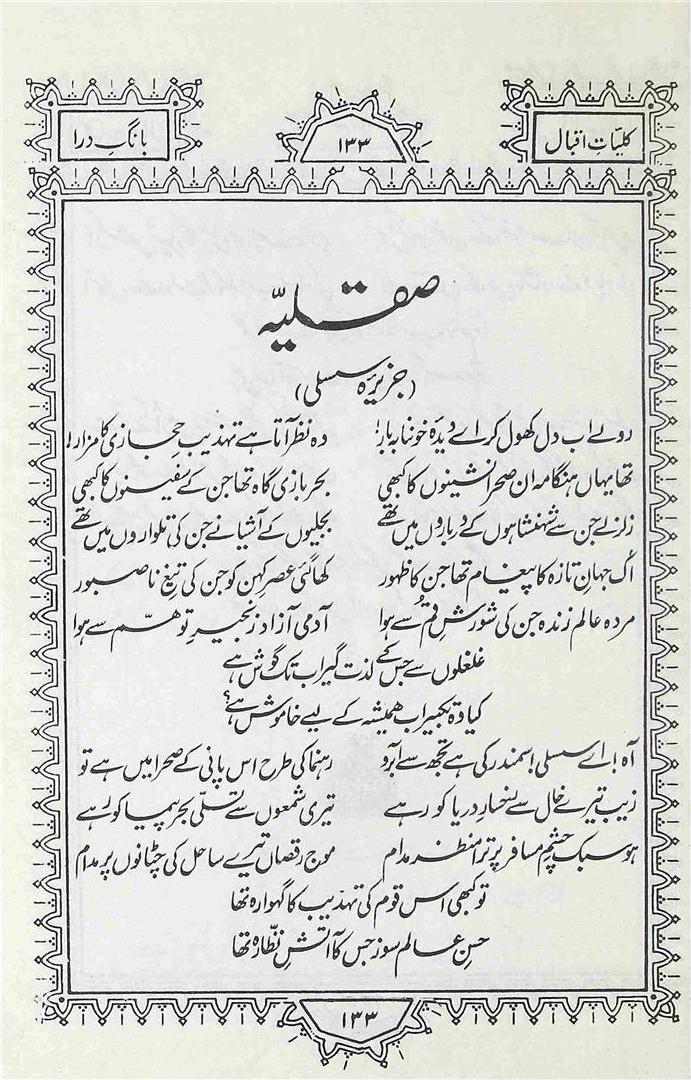 کلیاتِ اقبال
۱۳۳
بانگِ درا
صقلیّہ
(جزیرۂ سسلی)
رو لے اب دل کھول کر اے دیدۂ خوننابہ بار! وہ نظر آتا ہے تہذیبِ حجازی کا مزار!
تھا یہاں ہنگامہ ان صحرا نشینوں کا کبھی بحر بازی گاہ تھا جن کے سفینوں کا کبھی
زلزلے جن سے شہنشاہوں کے درباروں میں تھے بجلیوں کے آشیانے جن کی تلواروں میں تھے
اک جہانِ تازہ کا پیغام تھا جن کا ظہور کھا گئی عصرِ کہن کو جن کی تیغِ ناصبور
مردہ عالم زندہ جن کی شورشِ قم سے ہوا آدمی آزاد زنجیرِ توہّم سے ہوا
غلغلوں سے جس کے لذت گیر اب تک گوش ہے
کیا وہ تکبیر اب ہمیشہ کے لیے خاموش ہے؟
آہ! اے سسلی! سمندر کی ہے تجھ سے آبرو رہنما کی طرح اس پانی کے صحرا میں ہے تو
زیب تیرے خال سے رخسارِ دریا کو رہے تیری شمعوں سے تسلّی بحر پیما کو رہے
ہو سبک چشمِ مسافر پر ترا منظر مدام موج رقصاں تیرے ساحل کی چٹانوں پر مدام
تو کبھی اس قوم کی تہذیب کا گہوارہ تھا
حسنِ عالم سوز جس کا آتشِ نظّارہ تھا
۱۳۳